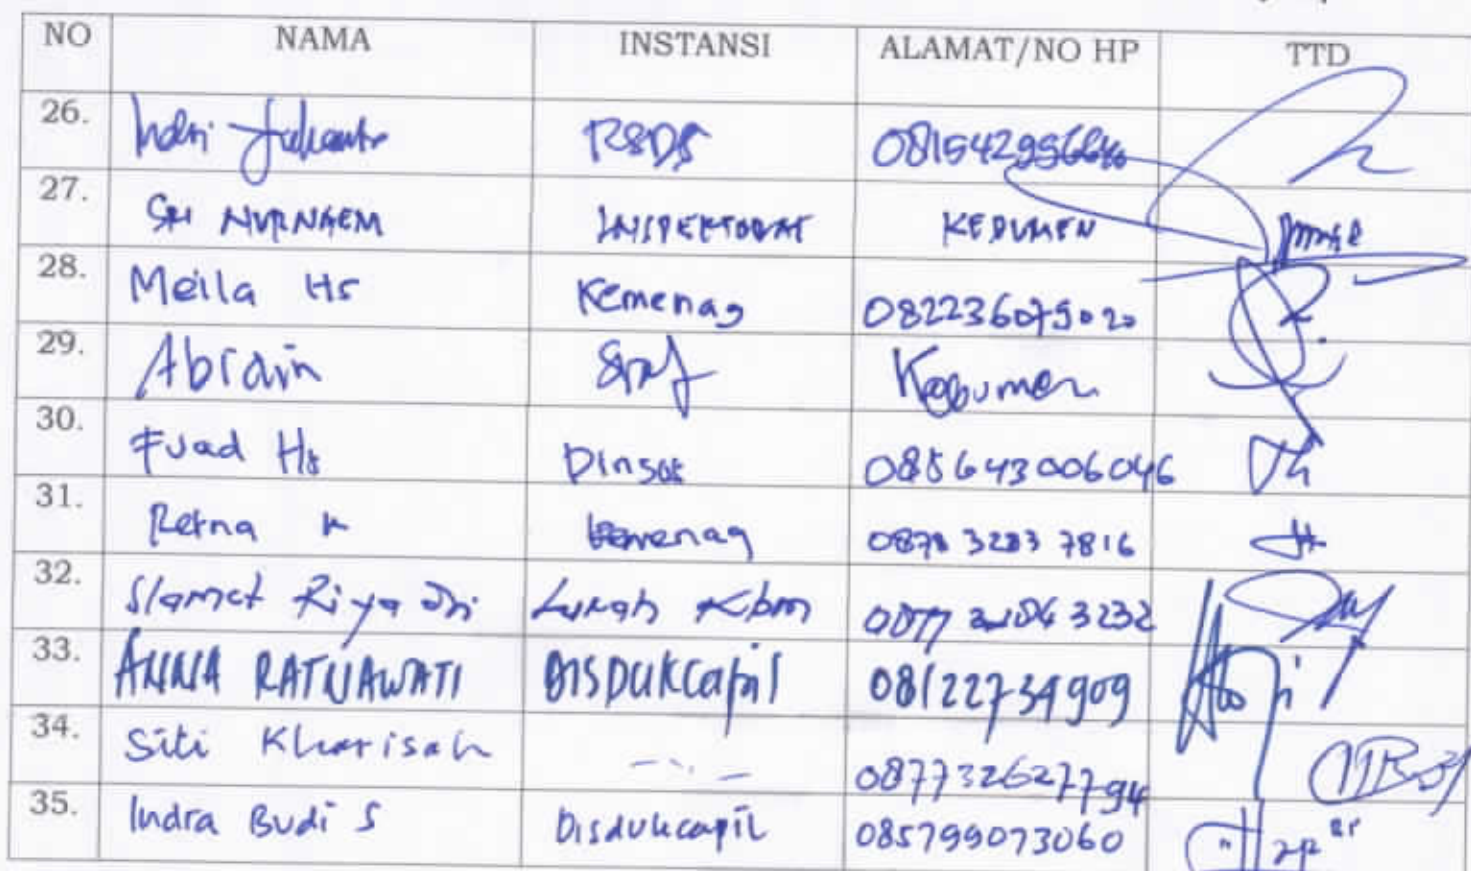 NO NAMA INSTANSI ALAMAT/NO HP TTD
26. Indri RSDS
27. SRI NURNAEM INSPEKTORAT KEBUMEN
28. Meila Hs Kemenag 082236079020
29. Abrain Kebumen
30. Fuad Hs Dinsos 085643006046
31. Retna Kemenag
32. Slamet Riyadi Lurah Kbm
33. ANNA RATNAWATI DISDUKCapil 08122734909
34. Siti Kharisah 087732627794
35. Indra Budi S Disdukcapil 085799073060